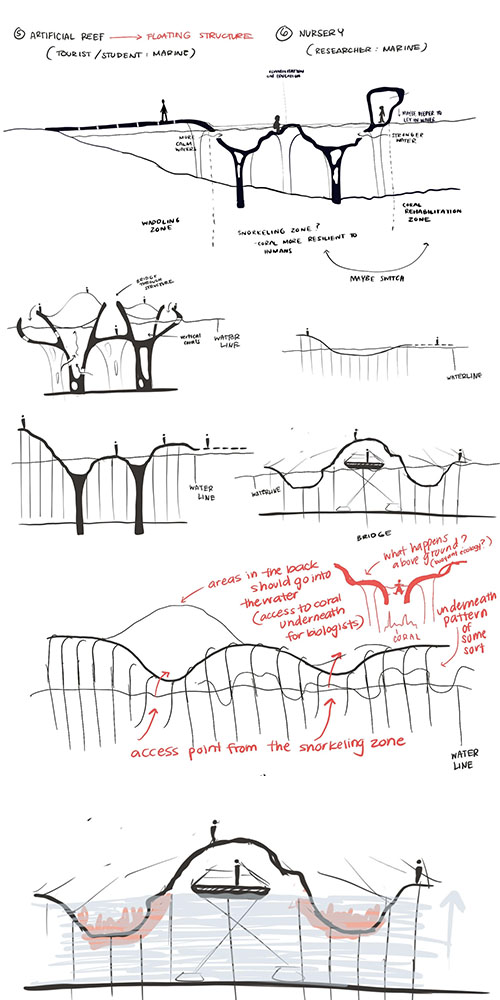 ⑤ ARTIFICIAL REEF → FLOATING STRUCTURE
(TOURIST / STUDENT : MARINE)
⑥ NURSERY
(RESEARCHER : MARINE)
MAYBE DEEPER TO
LET IN WATER
MORE
CALM
WATERS
STRONGER
WATER
WADDLING
ZONE
SNORKELING ZONE?
- CORAL MORE RESILIENT TO
HUMANS
CORAL
REHABILITATION
ZONE
MAYBE SWITCH
BRIDGE
THROUGH
STRUCTURE
VERTICAL
CORALS
WATER
LINE
WATERLINE
WATER
LINE
WATERLINE
BRIDGE
areas in the back
should go into
the water
(access to coral
underneath
for biologists)
what happens
above ground?
CORAL
underneath
pattern
of
some
sort
access point from the snorkeling zone
WATER
LINE